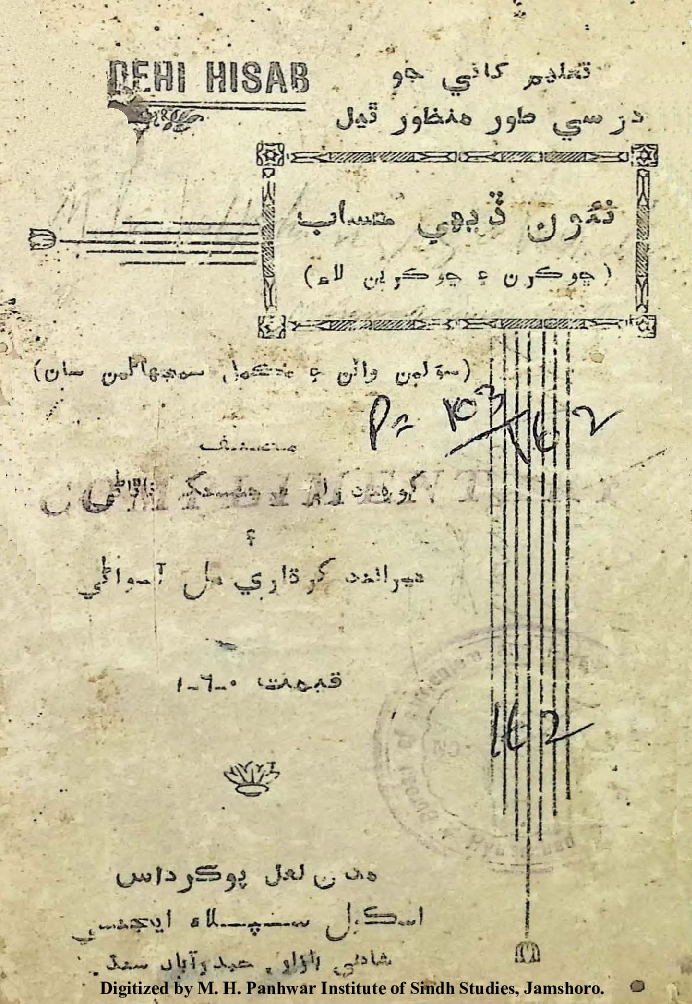 DEHI HISAB
تعليم کاتي جو
درسي طور منظور ٿيل
نئون ڏيهي حساب
(ڇوڪرن ۽ ڇوڪرين لاء)
(سؤلين واٽن ۽ مڪمل سمجهاڻين سان)
P = 103/162
مصنف
COMPLIMENTARY
۽
هيرانند گرڌاري مل آسواڻي
قيمت ٠-٦-١
162
مدن لعل پوڪرداس
اسڪول سپلاء ايجنسي
شاهي بازار، حيدرآباد سنڌ.
Digitized by M. H. Panhwar Institute of Sindh Studies, Jamshoro.